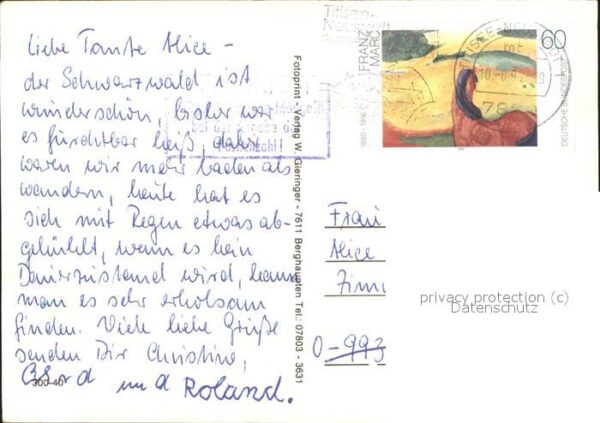 liebe Tante Alice -
der Schwarzwald ist
wunderschön, bisher war
es furchtbar heiß, dafür
waren wir mehr baden als
wandern, heute hat es
sich mit Regen etwas ab-
gekühlt, wenn es kein
Dauerzustand wird, kann
man es sehr erholsam
finden. Viele liebe Grüße
senden Dir Christine,
und Roland.
300-40
Fotoprint - Verlag W. Gieringer - 7611 Berghaupten Tel.: 07803 - 3631
Titisee-
FRANZ
MARC
1880-1916
60
DEUTSCHE BUNDESPOST
Frau
Alice
O-993
privacy protection (c)
Datenschutz